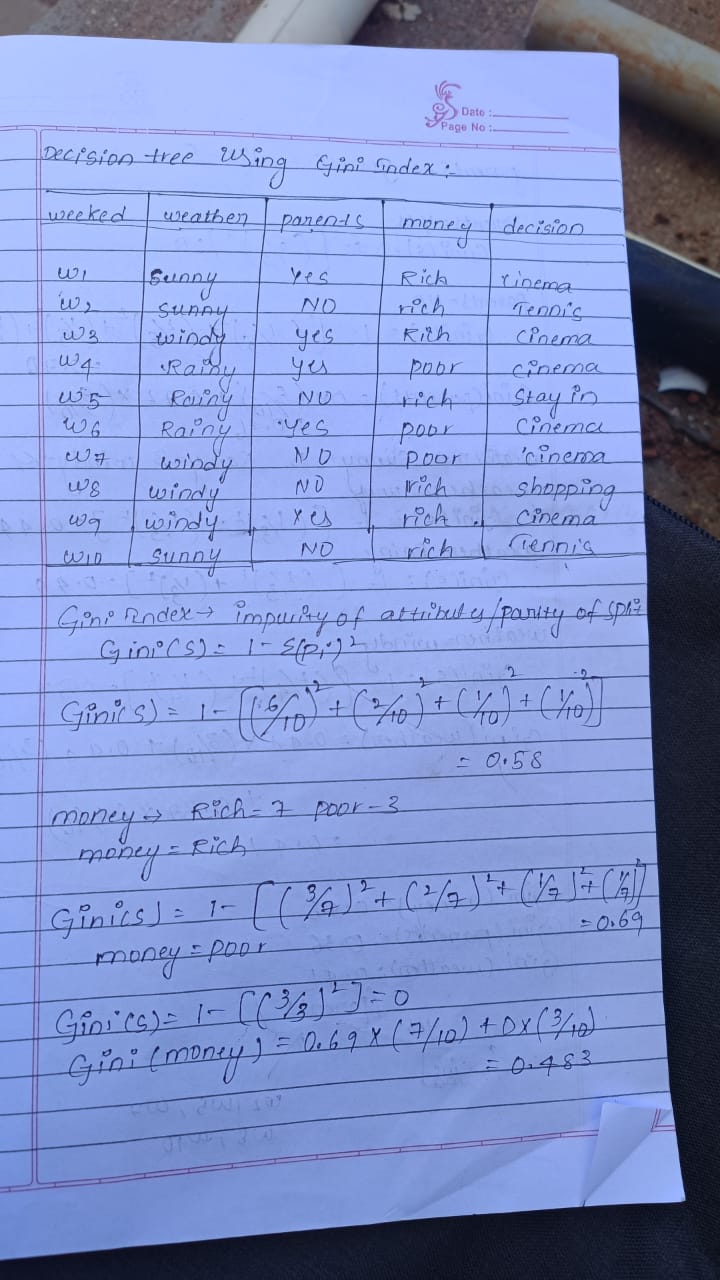 Date :
Page No :
Decision tree Using Gini Index :-
weeked weather parents money decision
W1 Sunny Yes Rich Cinema
W2 sunny NO rich Tennis
W3 windy yes Rich Cinema
W4 Rainy yes poor Cinema
W5 Rainy NO rich Stay in
W6 Rainy yes poor Cinema
W7 windy NO poor cinema
W8 windy NO rich shopping
W9 windy yes rich Cinema
W10 sunny NO rich Tennis
Gini Index → impurity of attributes/parity of split
Gini(S) = 1 - Σ(Pi)²
Gini(S) = 1 - [(6/10)² + (2/10)² + (1/10)² + (1/10)²]
= 0.58
money → Rich = 7 poor - 3
money = Rich
Gini(S) = 1 - [(3/7)² + (2/7)² + (1/7)² + (1/7)²]
= 0.69
money = poor
Gini(S) = 1 - [(3/3)²] = 0
Gini (money) = 0.69 × (7/10) + 0 × (3/10)
= 0.483